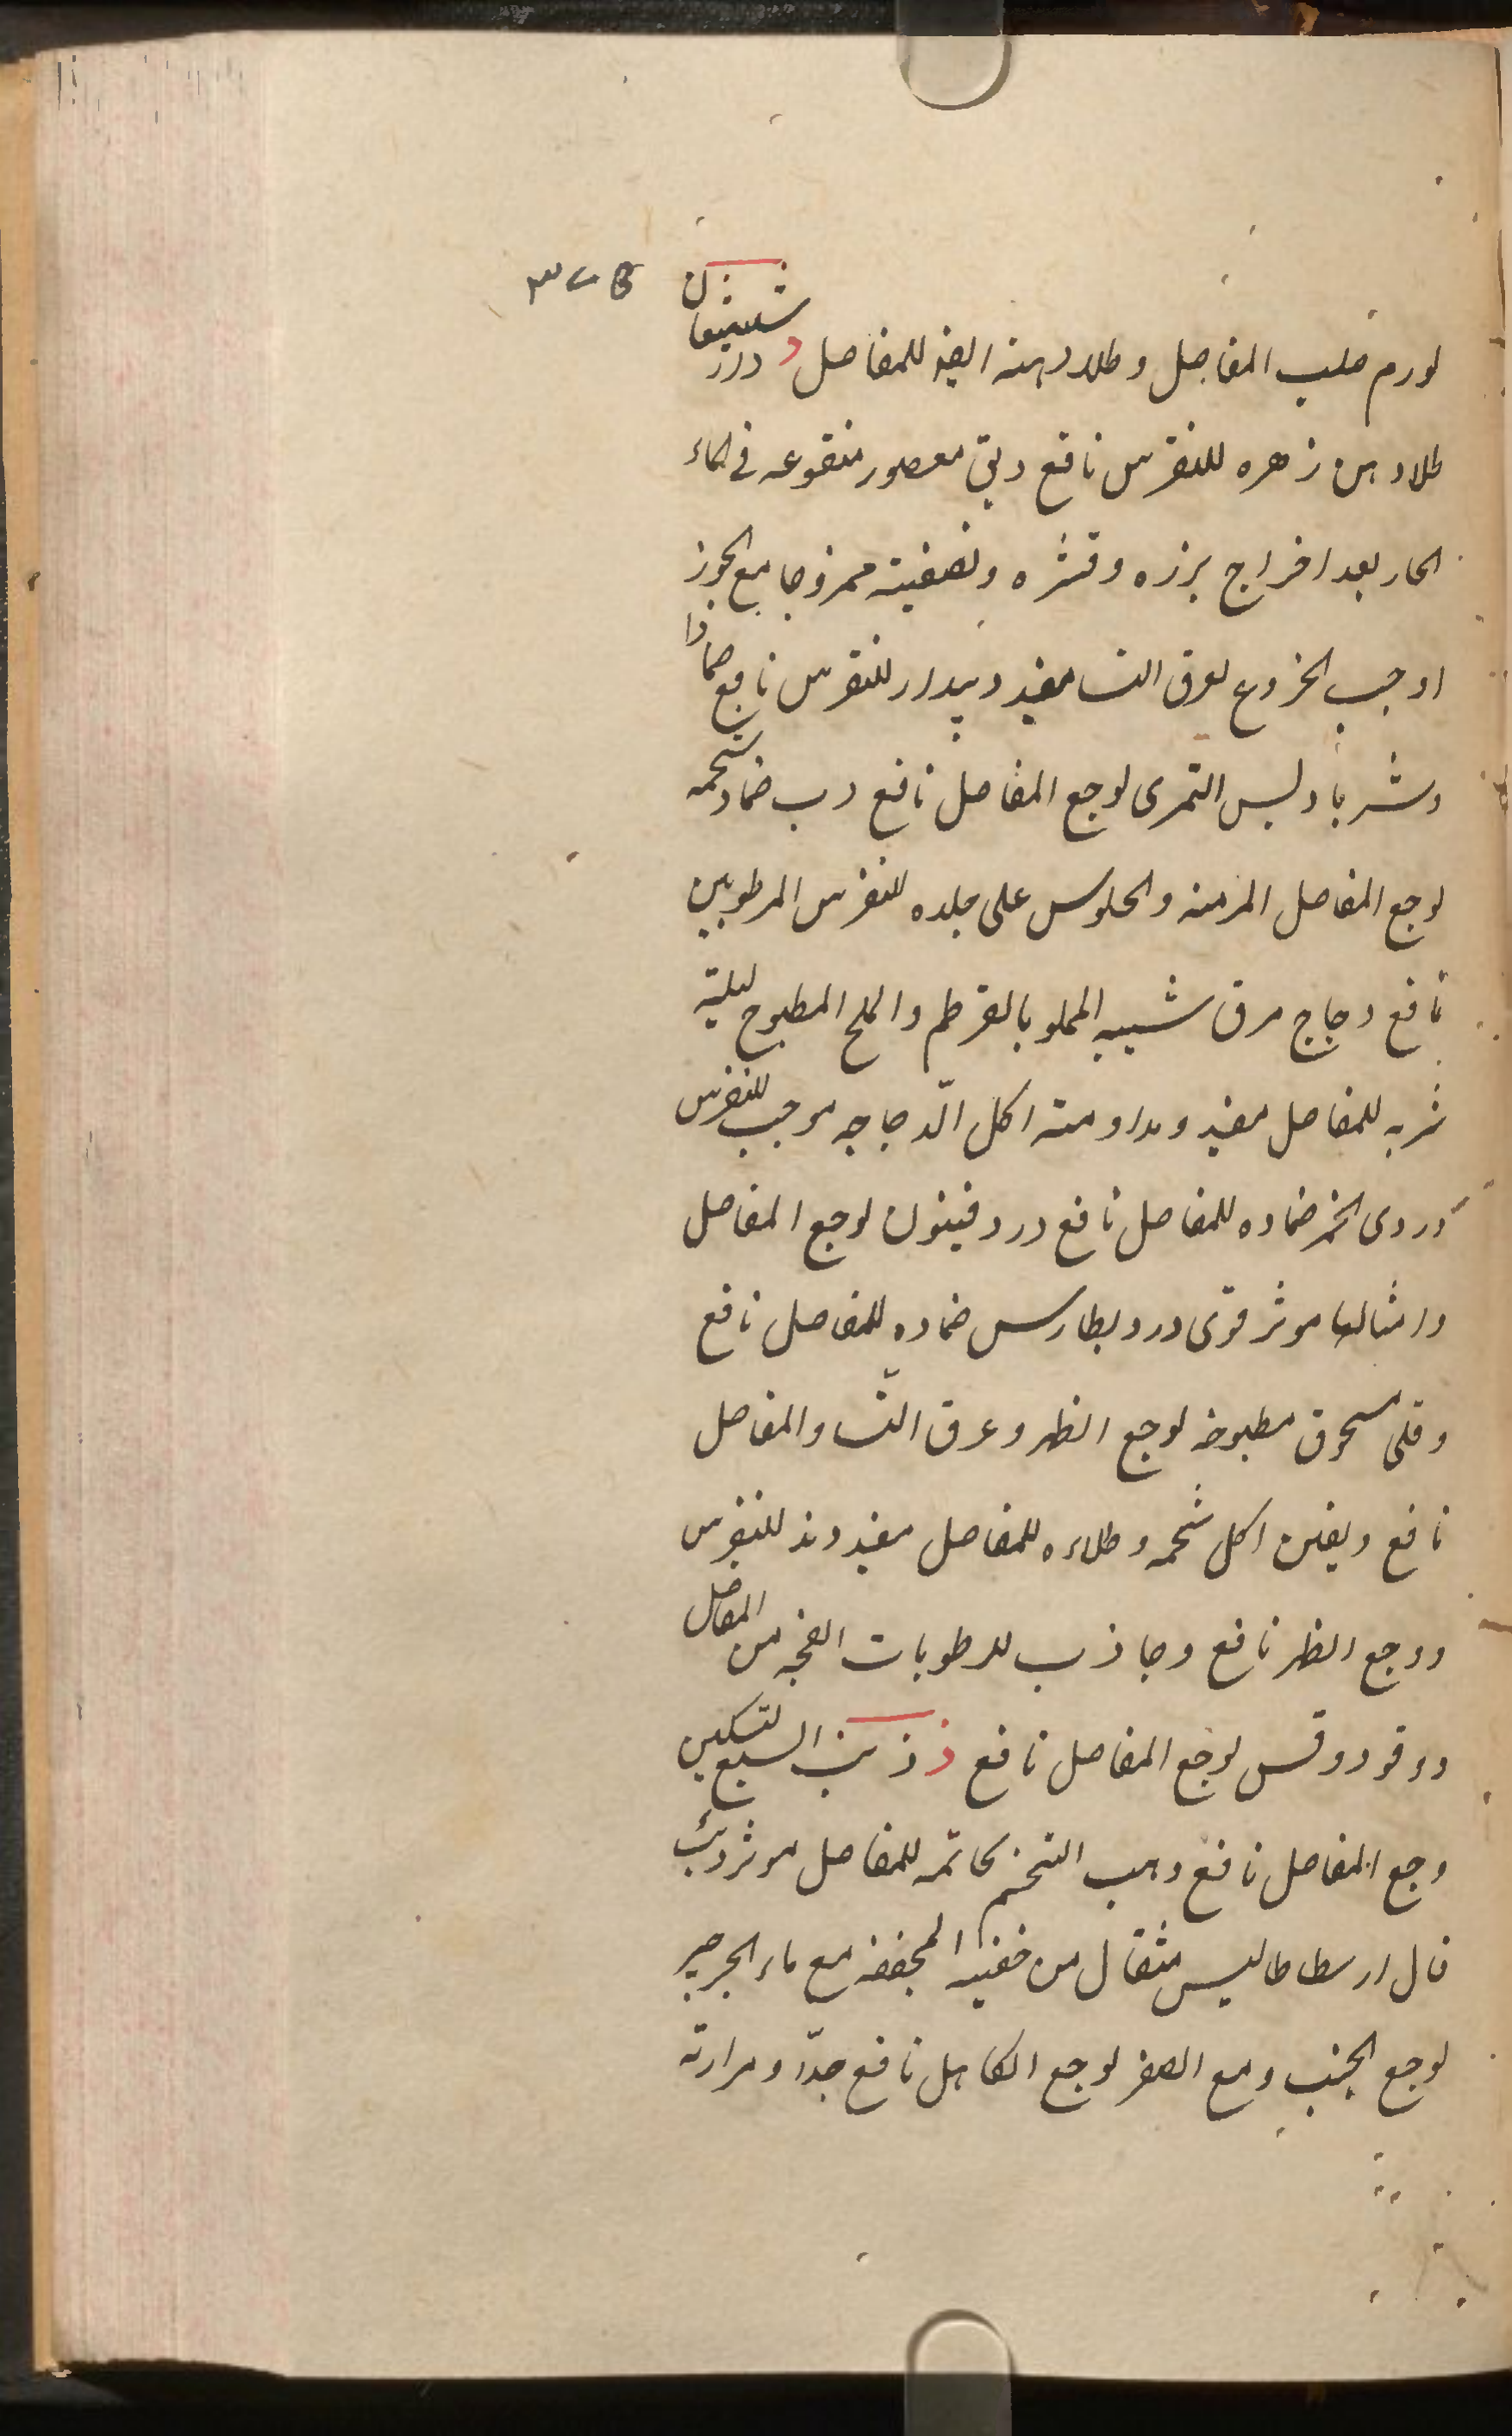 لورم صلب المفاصل وطلاء دهنه ایضا للمفاصل د دراز شیشعان
طلاء دهن زهره للنقرس نافع دبق معصور منقوعه فی الماء
الحار بعد اخراج بزره وقشره وتصفیته ممزوجا مع الجوز
او حب الخروع لعرق النسا مفید دیودار للنقرس نافع ضمادا
وشربا دبس التمری لوجع المفاصل نافع دب ضماد شحمه
لوجع المفاصل المزمنه والجلوس علی جلده للنقرس المرطوبین
نافع دجاج مرق شبیبه المملو بالقرطم والملح المطبوخ لیلیه
شربه للمفاصل مفید ومداومته اکل الّدجاجه موجب للنقرس
دردی الخمر ضماده للمفاصل نافع دردفینون لوجع المفاصل
وامثالها موثر قوی دردبطارس ضماده للمفاصل نافع
وقلی مسحوق مطبوخه لوجع الظهر وعرق النّسا والمفاصل
نافع دلفین اکل شحمه وطلاءه للمفاصل مفید دند للنقرس
ووجع الظهر نافع وجاذب للرطوبات الفجه من المفاصل
دوقو دوقس لوجع المفاصل نافع ذ ذنب السبع لتسکین
وجع المفاصل نافع ذهب التختم بخاتمه للمفاصل موثر ذئب
قال ارسطاطالیس مثقال من خصیه المجففه مع ماء الجرجیر
لوجع الجنب ومع الصعتر لوجع الکاهل نافع جدّا ومرارته